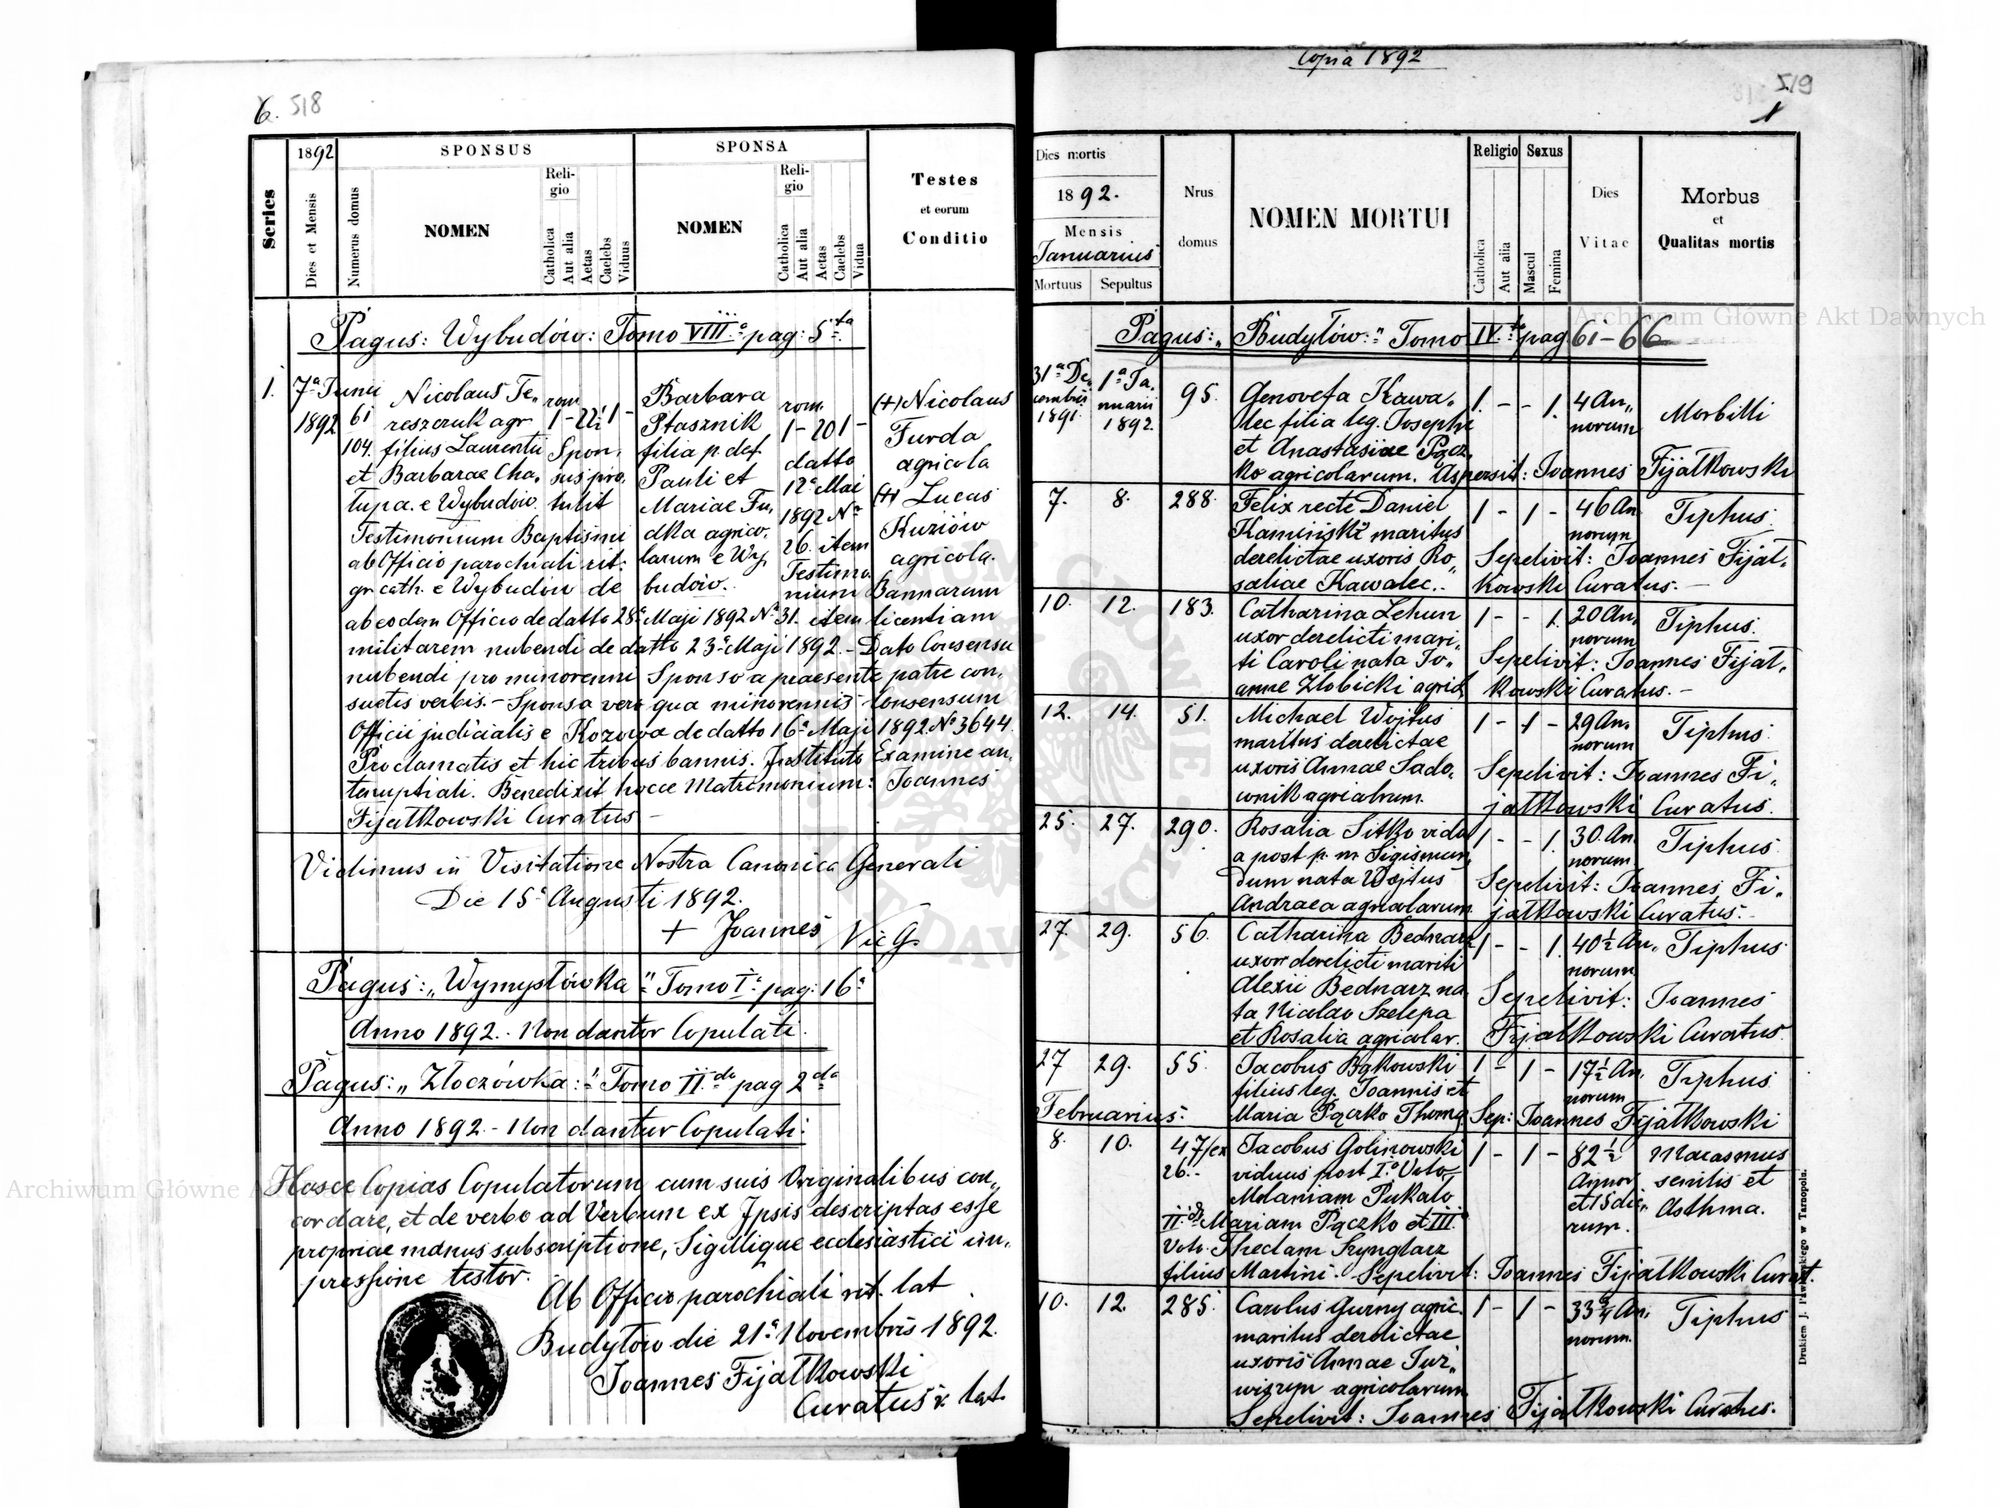 6. 518
Series
1892
Dies et Mensis
SPONSUS
Numerus domus
NOMEN
Religio
Catholica
Aut alia
Aetas
Caelebs
Viduus
SPONSA
NOMEN
Religio
Catholica
Aut alia
Aetas
Caelebs
Vidua
Testes
et eorum
Conditio
Pagus: Wybudów: Tomo VIII.º pag: 5ta
1. 7ª Junii 1892
61
104.
Nicolaus Te„
reszczuk agr
filius Laurentii
et Barbarae Cha„
łupa. e Wybudów.
rom
1 - 22½ 1 -
Spon„
sus pro„
tulit
Barbara
Ptasznik
filia p. def.
Pauli et
Mariae Fu„
dka agrico„
larum e Wy„
budów.
rom.
1 - 20 1 -
datto
12ª Mai
1892 Nº
26. item
Testimo„
nium Bannarum
(+) Nicolaus
Furda
agricola
(+) Lucas
Kuziów
agricola.
Testimonium Baptismi
ab Officio parochiali rit:
gr cath. e Wybudów de
ab eodem Officio de datto 28ª Maji 1892 Nº 31. item licentiam
militarem nubendi de datto 23ª Maji 1892. - Dato Consensu
nubendi pro minorenni Sponso a praesente patre con„
suetis verbis. - Sponsa vero qua minorennis Consensum
Officii judicialis e Kozowa de datto 16ª Maji 1892 Nº 3644.
Proclamatis et hic tribus bannis. Instituto Examine an„
tenuptiali. Benedixit hocce Matrimonium: Joannes
Fijałkowski Curatus -
Vidimus in Visitatione Nostra Canonica Generali
Die 15ª Augusti 1892.
+ Joannes Vic G.
Pagus: „Wymysłówka" Tomo Iº pag: 16ª
Anno 1892. - Non dantur Copulati.
Pagus: „Złoczówka:" Tomo II.do pag 2da
Anno 1892 - Non dantur Copulati:
Hasce Copias Copulatorum cum suis Originalibus con„
cordare, et de verbo ad Verbum ex Ipsis descriptas esse
propriae manus subscriptione, Sigillique ecclesiastici im„
pressione testor.
Ab Officio parochiali rit. lat
Budyłów die 21ª Novembris 1892.
Joannes Fijałkowski
Curatus r. lat
Copia 1892
519
1
Dies mortis
1892.
Mensis
Januarius
Mortuus
Sepultus
Nrus
domus
NOMEN MORTUI
Religio
Catholica
Aut alia
Sexus
Mascul
Femina
Dies
Vitae
Morbus
et
Qualitas mortis
Pagus: „Budyłów:" Tomo IV.to pag 61-66
31ª De„
cembris
1891.
1ª Ja„
nuarii
1892.
95.
Genovefa Kawa„
lec filia leg. Josephi
et Anastasiae Pącz„
ko agricolarum. Aspersit: Joannes Fijałkowski
1. - - 1.
4 An„
norum
Morbilli
7. 8. 288.
Felix recte Daniel
Kamiński maritus
derelictae uxoris Ro„
saliae Kawalec.
1 - 1 -
46 An
norum
Tiphus.
Sepelivit: Joannes Fijał„
kowski Curatus. -
10. 12. 183.
Catharina Lehun
uxor derelicti mari„
ti Caroli nata Jo„
anne Złobicki agricol
1 - - 1.
20 An„
norum
Tiphus.
Sepelivit: Joannes Fijał„
kowski Curatus. -
12. 14. 51.
Michael Wojtus
maritus derelictae
uxoris Annae Sado„
wnik agricolarum.
1 - 1 -
29 An„
norum
Tiphus.
Sepelivit: Joannes Fi„
jałkowski Curatus.
25. 27. 290.
Rosalia Sitko vidu
a post p. m Sigismun„
dum nata Wojtus
Andraea agricolarum.
1 - - 1.
30. An„
norum
Tiphus.
Sepelivit: Joannes Fi„
jałkowski Curatus. -
27. 29. 56.
Catharina Bednarz
uxor derelicti mariti
Alexii Bednarz na„
ta Nicolao Szelepa
et Rosalia agricolar.
1 - - 1.
40½ An„
norum
Tiphus
Sepelivit: Joannes
Fijałkowski Curatus.
27 29. 55.
Jacobus Bąkowski
filius leg. Joannis et
Maria Pączko Thoma
1 - 1 -
17½ An„
norum
Tiphus
Sep: Joannes Fijałkowski
Februarius:
8. 10. 47/ex
26.
Jacobus Golinowski
viduus post I.º Voto
Melaniam Pukało
II.do Mariam Pączko et III
Voto. Theclam Szynglarz
filius Martini. Sepelivit: Joannes Fijałkowski Curat.
1 - 1 -
82½
Annor.
et 15 die„
rum.
Marasmus
senilis et
Asthma.
10. 12. 285.
Carolus Gurny agric.
maritus derelictae
uxoris Annae Jur„
wiszyn agricolarum.
Sepelivit: Joannes Fijałkowski Curatus.
1 - 1 -
33¾ An„
norum.
Tiphus
Drukiem J. Pawłowskiego w Tarnopolu.
Archiwum Główne Akt Dawnych
Archiwum Główne A